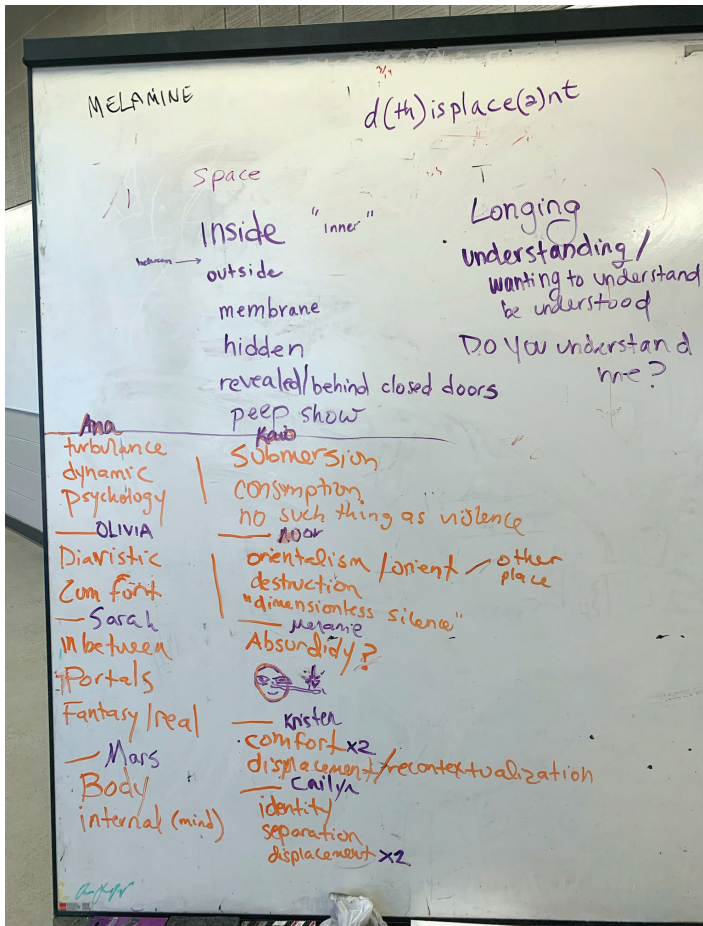 MELAMINE
d(th)isplace(2)nt
Space
Inside "Inner"
between → outside
membrane
hidden
revealed/behind closed doors
peep show
Longing
understanding/
wanting to understand
be understood
Do you understand
me?
Ana
turbulance
dynamic
Psychology
OLIVIA
Diaristic
Comfort
Sarah
In between
Portals
Fantasy/real
Mars
Body
internal (mind)
Kaio
Submersion
consumption
no such thing as violence
Noor
orientalism/orient — other
place
destruction
"dimensionless silence"
Melanie
Absurdidy?
Kristen
comfort x2
displacement/recontextualization
Cailyn
identity
separation
displacement x2